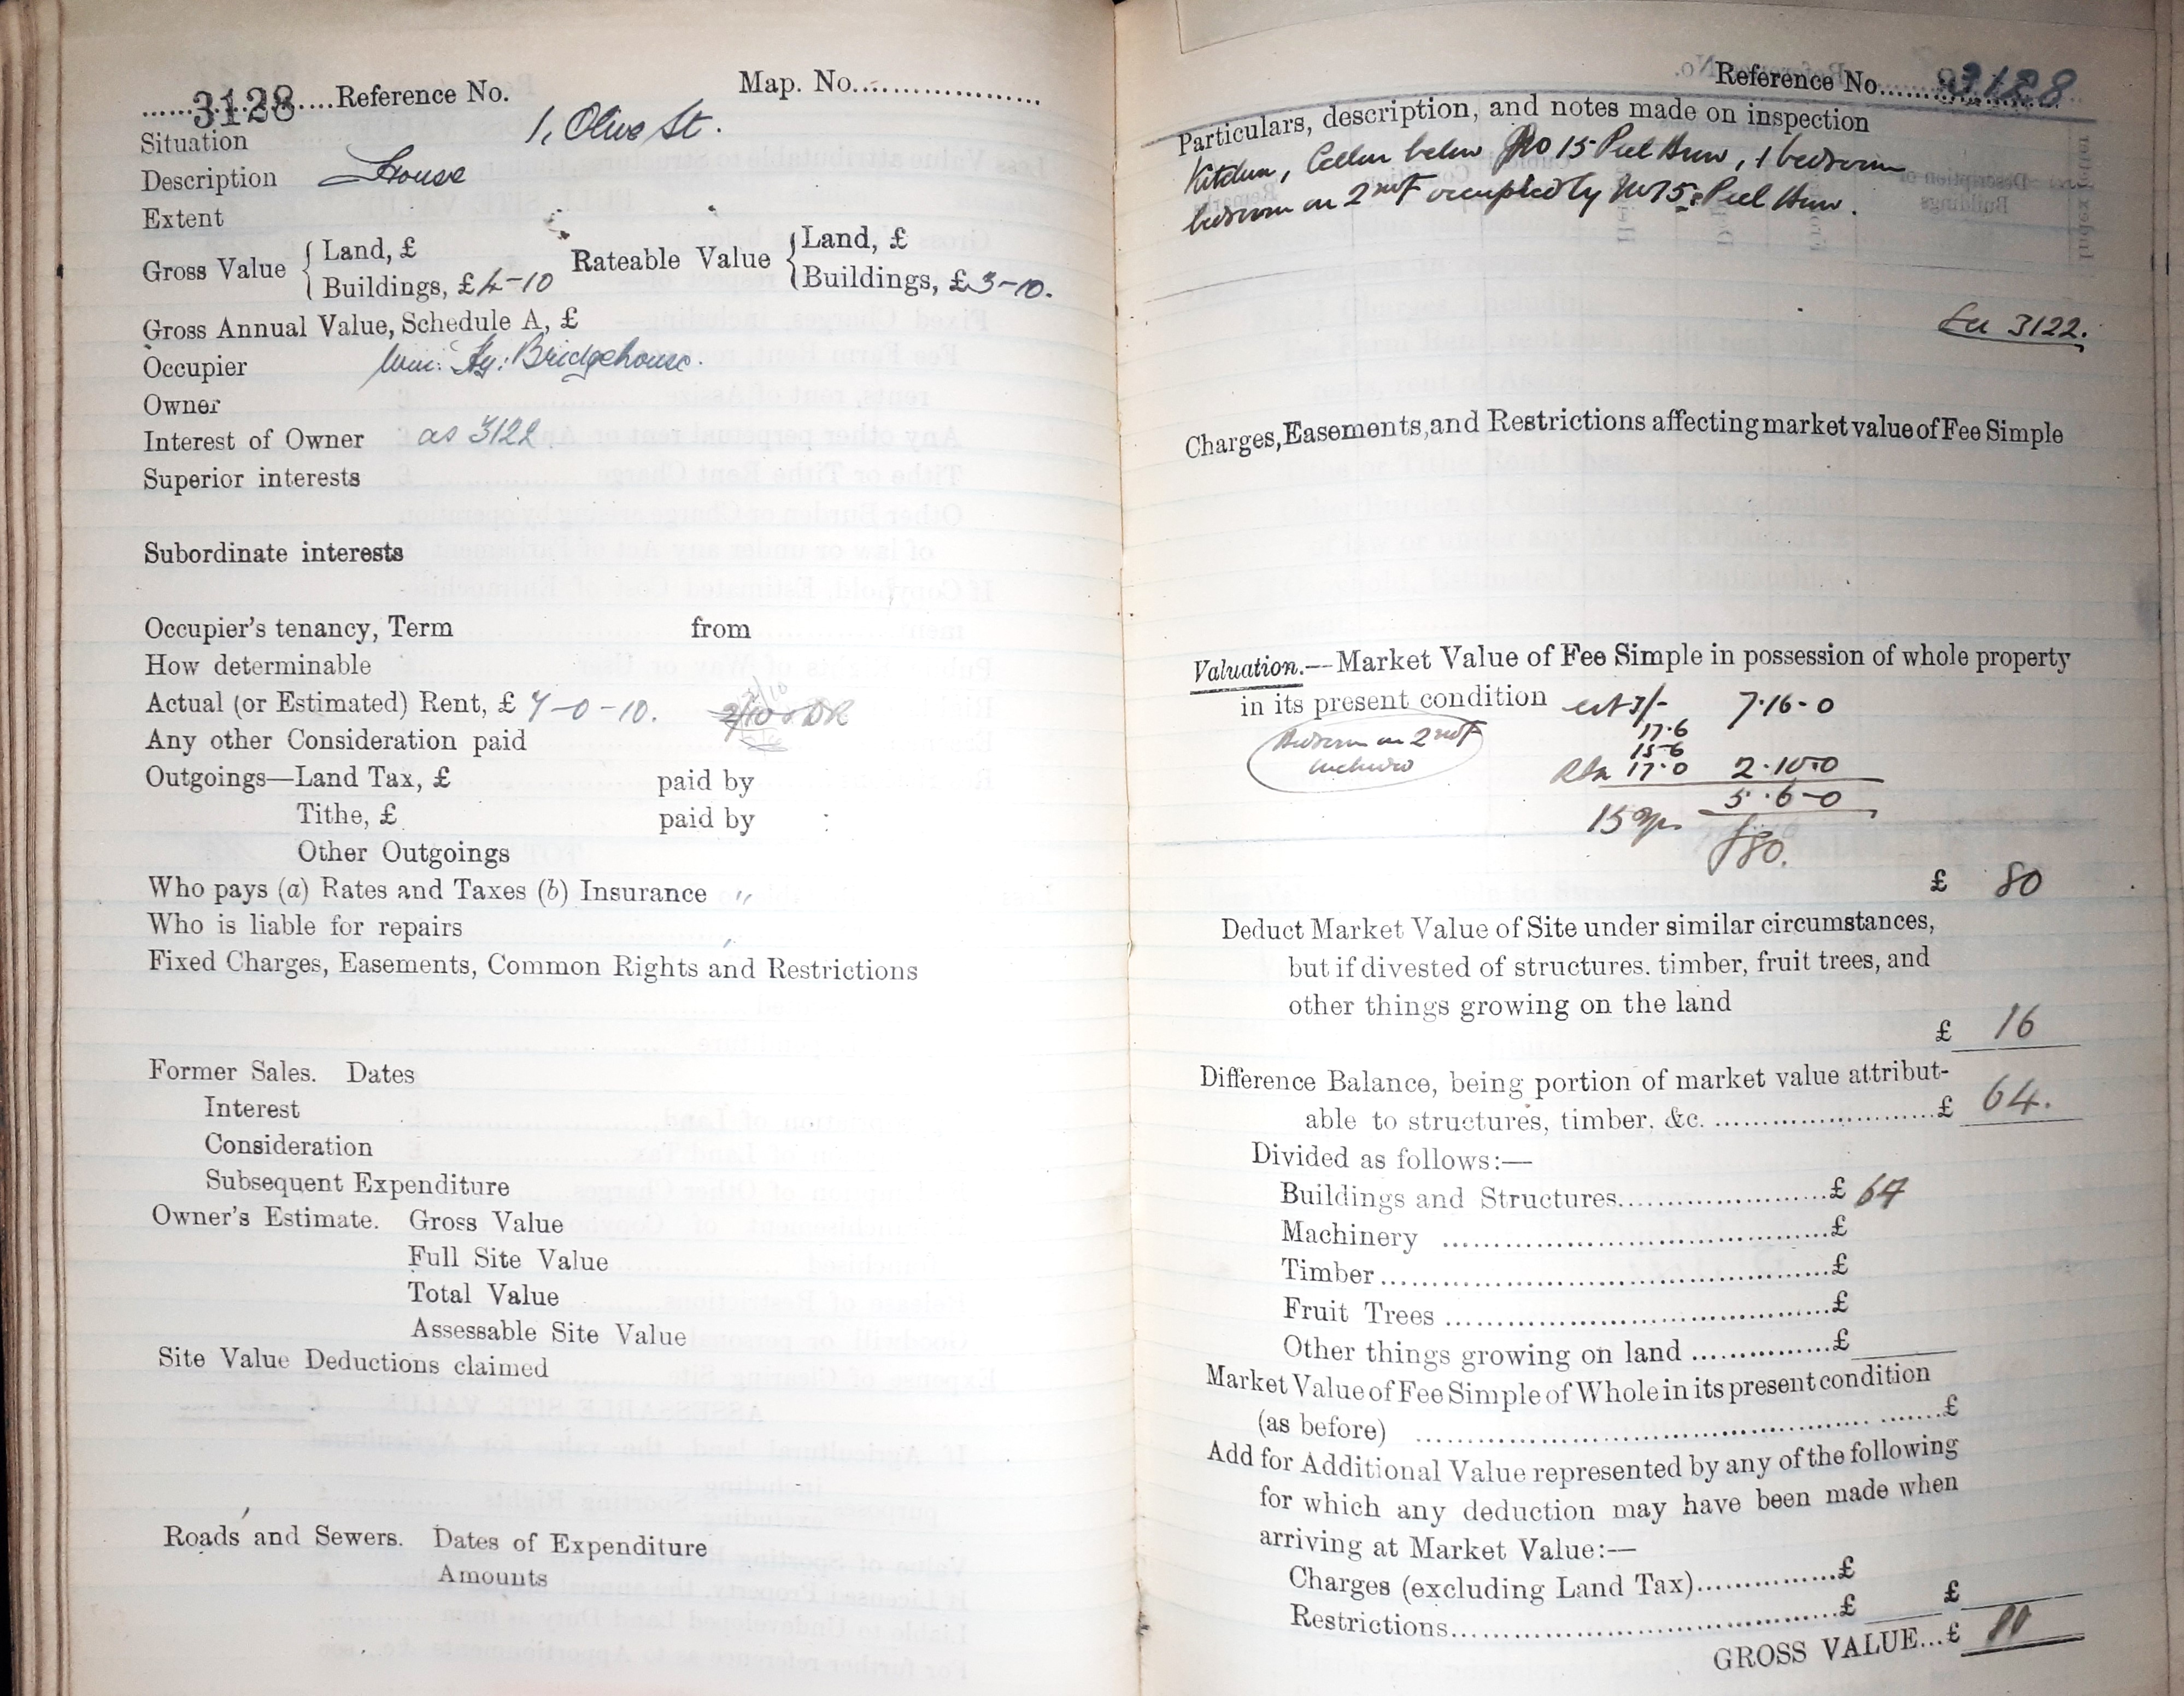 3128 Reference No. Map. No.
Situation 1, Olive St.
Description House
Extent
Gross Value { Land, £ Rateable Value { Land, £
Buildings, £ 4-10 Buildings, £ 3-10.
Gross Annual Value, Schedule A, £
Occupier Wm: Hy: Bridgehouse.
Owner
Interest of Owner as 3122
Superior interests
Subordinate interests
Occupier's tenancy, Term from
How determinable
Actual (or Estimated) Rent, £ 7-0-10. 2/10
Any other Consideration paid
Outgoings—Land Tax, £ paid by
Tithe, £ paid by
Other Outgoings
Who pays (a) Rates and Taxes (b) Insurance "
Who is liable for repairs
Fixed Charges, Easements, Common Rights and Restrictions
Former Sales. Dates
Interest
Consideration
Subsequent Expenditure
Owner's Estimate. Gross Value
Full Site Value
Total Value
Assessable Site Value
Site Value Deductions claimed
Roads and Sewers. Dates of Expenditure
Amounts
Reference No. 3128
Particulars, description, and notes made on inspection
Kitchen, Cellar below No 15 Peel Brow, 1 bedroom
bedroom on 2nd F occupied by No 15 Peel Brow.
See 3122.
Charges, Easements, and Restrictions affecting market value of Fee Simple
Valuation.—Market Value of Fee Simple in possession of whole property
in its present condition est 3/- 7.16-0
Bedroom on 2nd F
17.6
15-6
17.0 2.10.0
5.6-0
15 yp.
£80.
£ 80
Deduct Market Value of Site under similar circumstances,
but if divested of structures. timber, fruit trees, and
other things growing on the land
£ 16
Difference Balance, being portion of market value attribut-
able to structures, timber, &c. £ 64.
Divided as follows:—
Buildings and Structures £ 64
Machinery £
Timber £
Fruit Trees £
Other things growing on land £
Market Value of Fee Simple of Whole in its present condition
(as before) £
Add for Additional Value represented by any of the following
for which any deduction may have been made when
arriving at Market Value:—
Charges (excluding Land Tax) £
Restrictions £ £
GROSS VALUE...£ 80